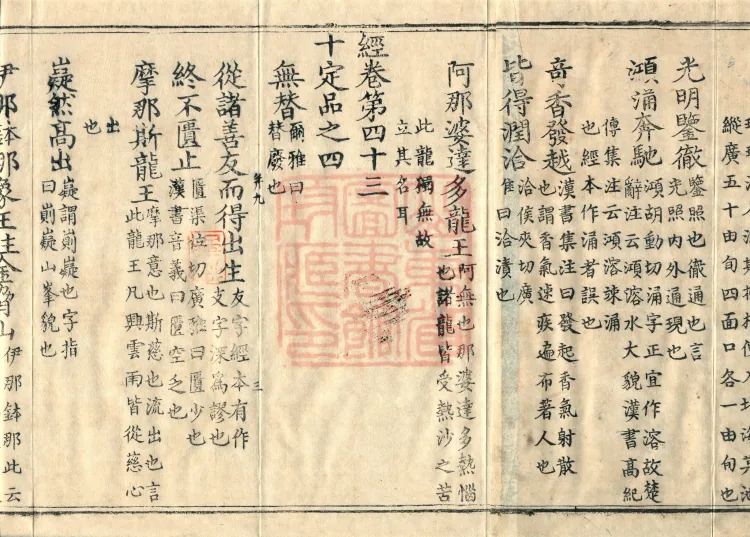 縱廣五十由旬四面口各一由旬也
光明鑒徹鑒照也徹通也言
光照內外通現也
澒涌奔馳澒胡動切涌字正宜作溶故楚
辭注云澒溶水大貌漢書高紀
傳集注云澒溶竦涌
也經本作涌者誤也
奇香發越漢書集注曰發起香氣射散
也謂香氣速疾遍布著人也
皆得潤洽洽侯夾切廣
雅曰洽漬也
阿那婆達多龍王阿無也那婆達多熱惱
也諸龍皆受熱沙之苦
此龍獨無故
立其名耳
經卷第四十三
十定品之四
無替爾雅曰
替廢也
弁九
三
從諸善友而得出生友字經本有作
支字深爲謬也
終不匱止匱渠位切廣雅曰匱少也
漢書音義曰匱空乏也
摩那斯龍王摩那意也斯慈也流出也言
此龍王凡興雲雨皆從慈心
出
也
嶷然高出嶷謂崱嶷也字指
曰崱嶷山峯貌也
伊那鉢那象王住金脅山伊那鉢那此云